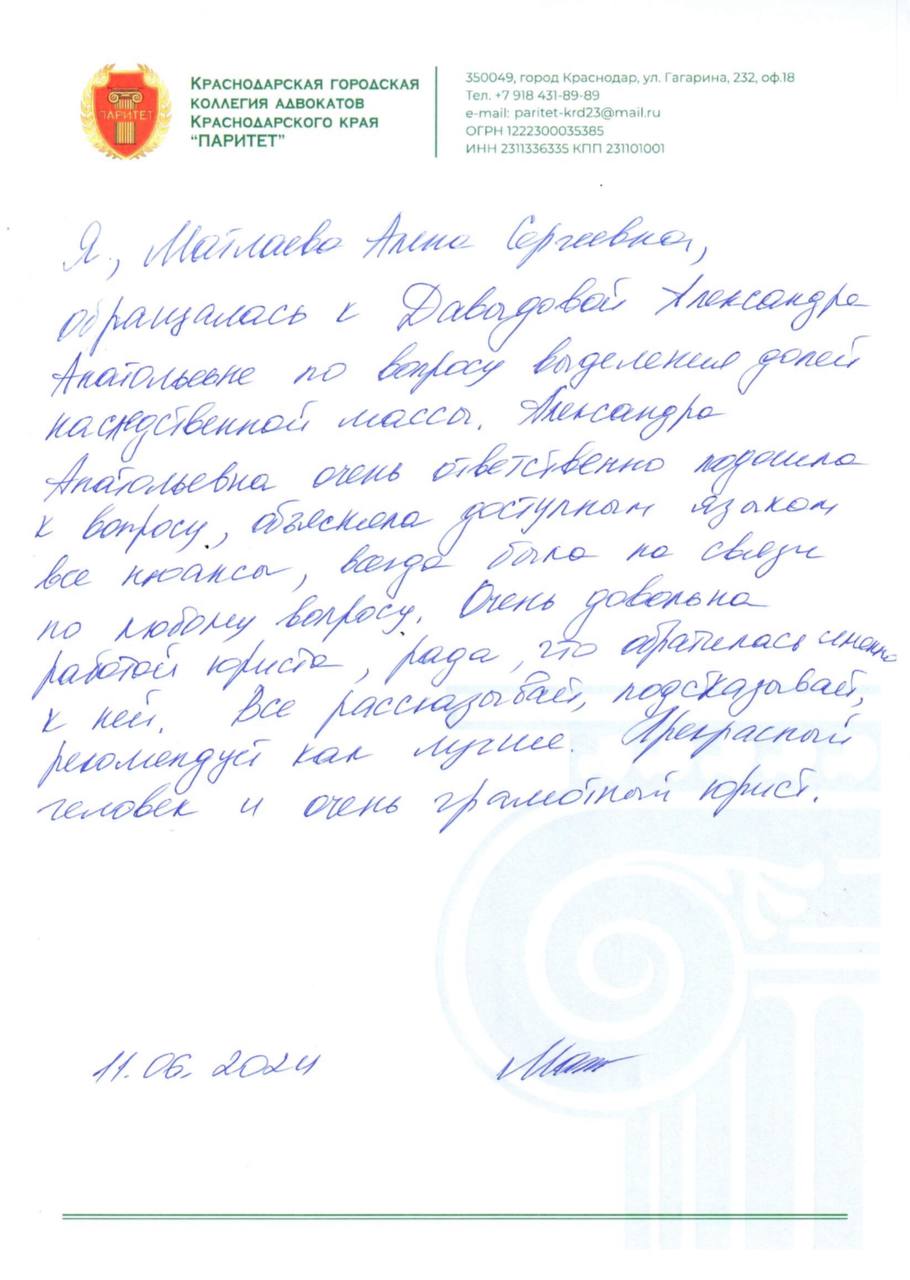 ПАРИТЕТ
КРАСНОДАРСКАЯ ГОРОДСКАЯ
КОЛЛЕГИЯ АДВОКАТОВ
КРАСНОДАРСКОГО КРАЯ
“ПАРИТЕТ”
350049, город Краснодар, ул. Гагарина, 232, оф.18
Тел. +7 918 431-89-89
e-mail: paritet-krd23@mail.ru
ОГРН 1222300035385
ИНН 2311336335 КПП 231101001
Я, Матлаева Алена Сергеевна,
обращалась к Давыдовой Александре
Анатольевне по вопросу выделения долей
наследственной массы. Александра
Анатольевна очень ответственно подошла
к вопросу, объяснила доступным языком
все нюансы, всегда была на связи
по любому вопросу. Очень довольна
работой юриста, рада, что обратилась именно
к ней. Все рассказывает, подсказывает,
рекомендует как лучше. Прекрасный
человек и очень грамотный юрист.
11.06.2024